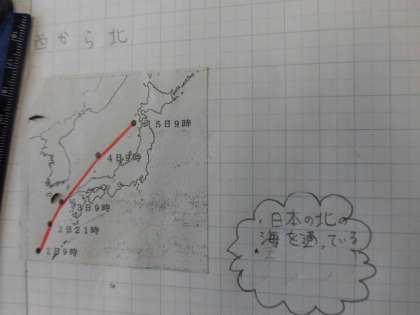 西から北
5日9時
4日9時
3日9時
2日21時
2日9時
・日本の北の
海を通っている